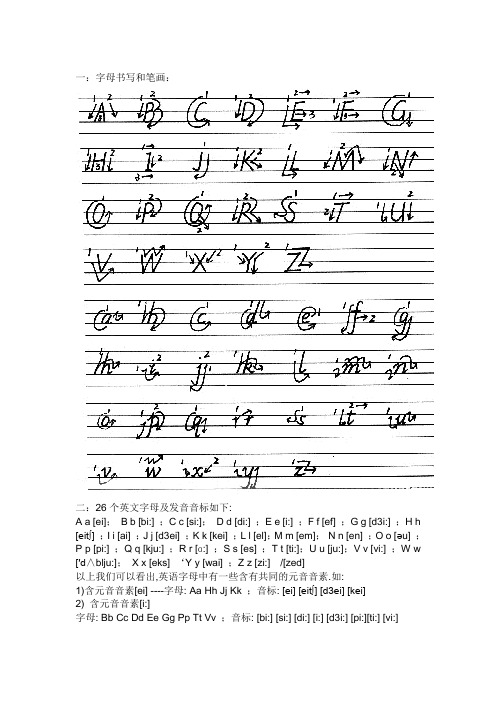 一：字母书写和笔画：
A B C D E F G
H I J K L M N
O P Q R S T U
V W X Y Z
a b c d e f g
h i j k l m n
o p q r s t u
v w x y z
二：26 个英文字母及发音音标如下:
A a [ei]； B b [bi:] ；C c [si:]； D d [di:] ；E e [i:] ；F f [ef] ；G g [d3i:] ；H h
[eit∫] ；I i [ai] ；J j [d3ei] ；K k [kei] ；L l [el]；M m [em]； N n [en] ；O o [əu] ；
P p [pi:] ；Q q [kju:] ；R r [ɑ:] ；S s [es] ；T t [ti:]；U u [ju:]；V v [vi:] ；W w
['d∧blju:]； X x [eks] ‘Y y [wai] ；Z z [zi:] /[zed]
以上我们可以看出,英语字母中有一些含有共同的元音音素.如:
1)含元音音素[ei] ----字母: Aa Hh Jj Kk ；音标: [ei] [eit∫] [d3ei] [kei]
2) 含元音音素[i:]
字母: Bb Cc Dd Ee Gg Pp Tt Vv ；音标: [bi:] [si:] [di:] [i:] [d3i:] [pi:][ti:] [vi:]